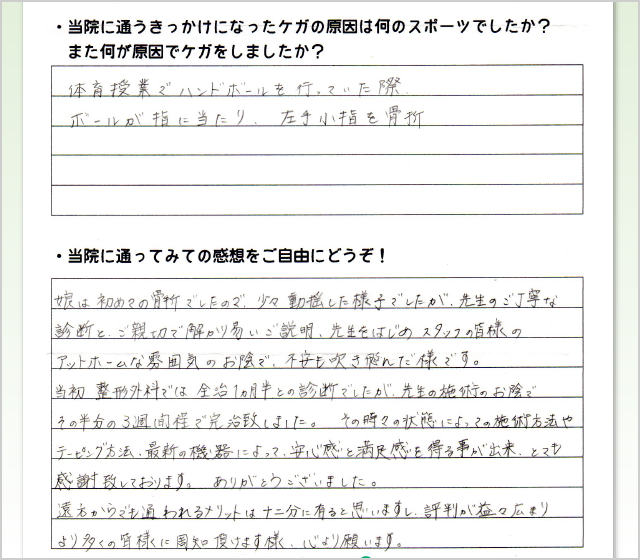 ・当院に通うきっかけになったケガの原因は何のスポーツでしたか？
また何が原因でケガをしましたか？
体育授業でハンドボールを行っていた際、
ボールが指に当たり、左手小指を骨折
・当院に通ってみての感想をご自由にどうぞ！
娘は初めての骨折でしたので、少々動揺した様子でしたが、先生のご丁寧な
診断と、ご親切で解かり易いご説明、先生をはじめスタッフの皆様の
アットホームな雰囲気のお陰で、不安も吹き飛んだ様です。
当初整形外科では全治1ヵ月半との診断でしたが、先生の施術のお陰で
その半分の3週間程で完治致しました。その時々の状態によっての施術方法や
テーピング方法、最新の機器によって、安心感と満足感を得る事が出来、とても
感謝致しております。ありがとうございました。
遠方からでも通われるメリットは十二分に有ると思いますし、評判が益々広まり
より多くの皆様に周知頂けます様、心より願います。